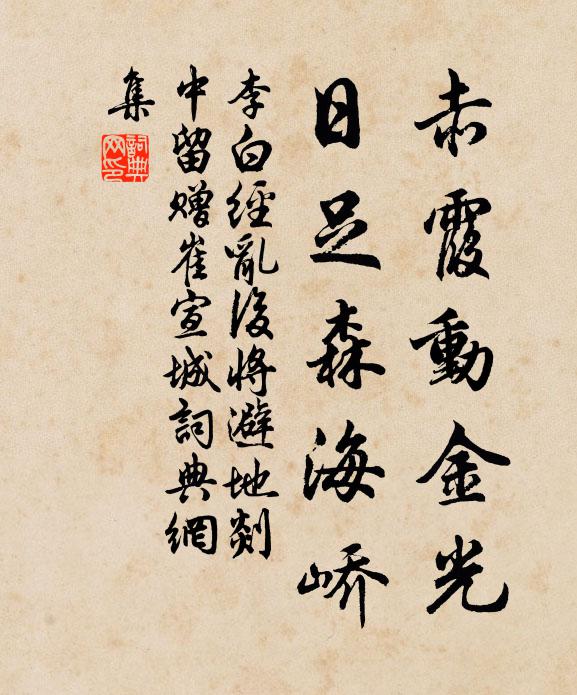 赤霞動金光
日足森海峤
李白經亂後將避地剡
中留贈崔宣城詞典網
集
詞典網印